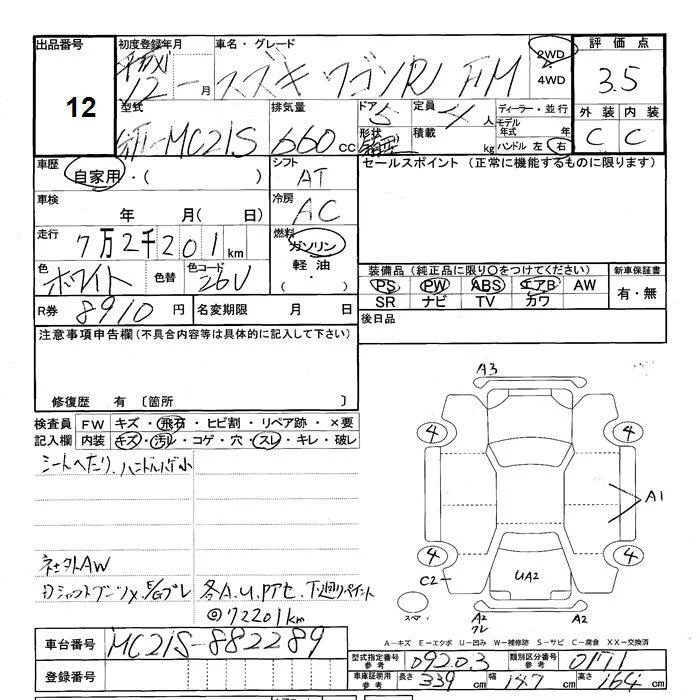 出品番号 12
初度登録年月 平成 12年 一月
車名・グレード スズキ ワゴンR FM
2WD 4WD
評価点 3.5
外装 C 内装 C
型式 MC21S
排気量 660cc
ドア 5
形状
定員 4人
積載 kg
ディーラー・並行
モデル年式 年
ハンドル 左 右
車歴 自家用・( )
シフト AT
セールスポイント (正常に機能するものに限ります)
車検 年 月( 日)
冷房 AC
走行 7万2千201km
燃料 ガソリン 軽油 ( ・ )
色 ホワイト 色替 色コード 26U
装備品 (純正品に限り〇をつけてください) 新車保証書
PS PW ABS エアB AW 有・無
SR ナビ TV カワ
R券 8910円 名変期限 月 日
後日品
注意事項申告欄 (不具合内容等は具体的に記入して下さい)
修復歴 有 〔箇所 〕
検査員記入欄 FW キズ・飛石・ヒビ割・リペア跡・×要
内装 キズ・汚レ・コゲ・穴・スレ・キレ・破レ
シートへたり、ハンドルハゲ小
社外AW
各A.U.Pアセ、下廻りペイント
@72201km
A3
4 4
A1
4 4
C2
UA2
スペア
A2 クレ A2
A-キズ E-エクボ U-凹み W-補修跡 S-サビ C-腐食 XX-交換済
車台番号 MC21S-882289
型式指定番号 参考 09203 類別区分番号 参考 0171
登録番号
車庫証明用 参考 長さ 339cm 幅 147cm 高さ 164cm